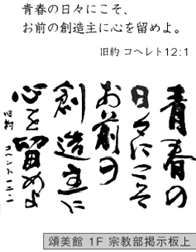 青春の日々にこそ、
お前の創造主に心を留めよ。
旧約 コヘレト12:1
青春の
日々にこそ
お前の
創造主に
心を留めよ
旧約 コヘレト十二・一
頌美館 1F 宗教部掲示板上